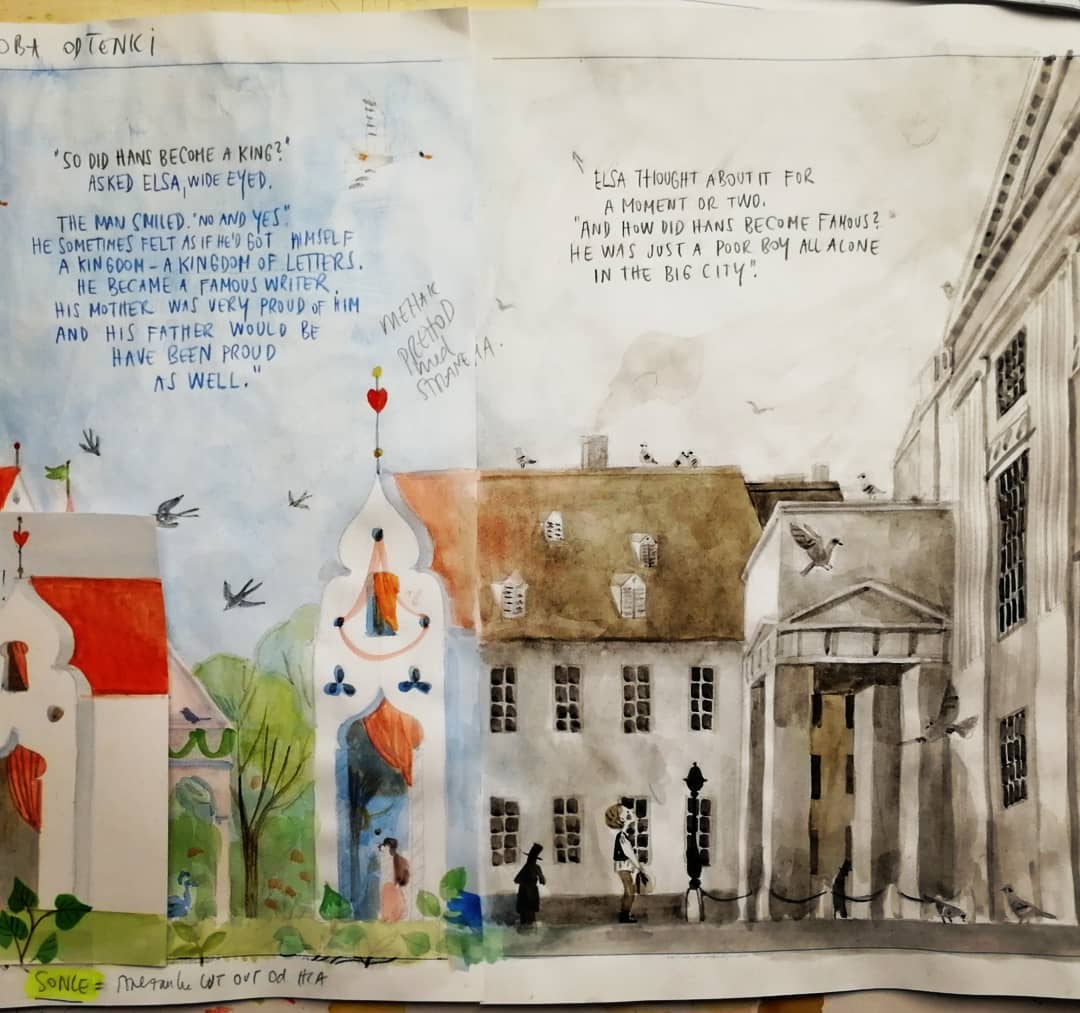 OBA ODTENKI
"SO DID HANS BECOME A KING?"
ASKED ELSA, WIDE EYED.
THE MAN SMILED. "NO AND YES".
HE SOMETIMES FELT AS IF HE'D GOT HIMSELF
A KINGDOM – A KINGDOM OF LETTERS.
HE BECAME A FAMOUS WRITER.
HIS MOTHER WAS VERY PROUD OF HIM
AND HIS FATHER WOULD BE
HAVE BEEN PROUD
AS WELL."
MEHAK
PREHOD
med
ELSA THOUGHT ABOUT IT FOR
A MOMENT OR TWO.
"AND HOW DID HANS BECOME FAMOUS?
HE WAS JUST A POOR BOY ALL ALONE
IN THE BIG CITY".
SONCE = CUT OUT